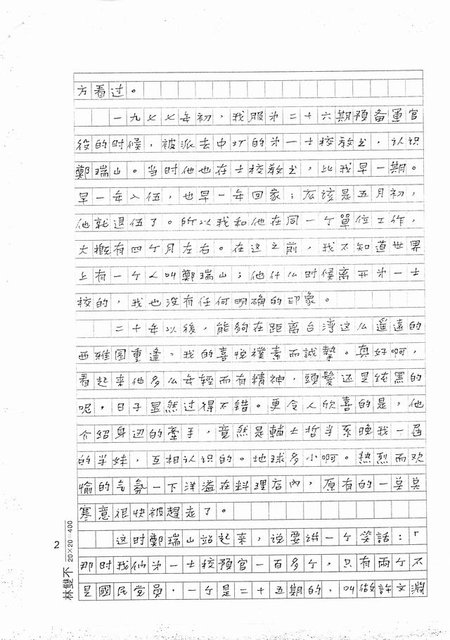 方看过。
一九七七年初，我服第二十六期預备軍官
役的时候，被派去中坜的第一士校教書，认识
鄭瑞山。当时他也在士校教書，比我早一期。
早一年入伍，也早一年回家；应该是五月初，
他就退伍了。所以我和他在同一个單位工作，
大概有四个月左右。在这之前，我不知道世界
上有一个人叫鄭瑞山；他什么时候离开第一士
校的，我也沒有任何明确的印象。
二十年以後，能夠在距离台湾这么遥遠的
西雅圖重逢，我的喜悅樸素而誠摯。真好啊，
看起来他多么年轻而有精神，頭髮还是純黑的
呢，日子显然过得不错。更令人欣喜的是，他
介绍身边的牽手，竟然是輔大哲学系晚我一届
的学妹，互相认识的。地球多小啊。热烈而欢
愉的气氛一下洋溢在料理店內，原有的一莫莫
寒意很快被趕走了。
这时鄭瑞山站起来，说要讲一个笑話：「
那时我们第一士校預官一百多个，只有兩个不
是國民党员，一个是二十五期的，叫做許文淵
2
林雙不 20×20 400